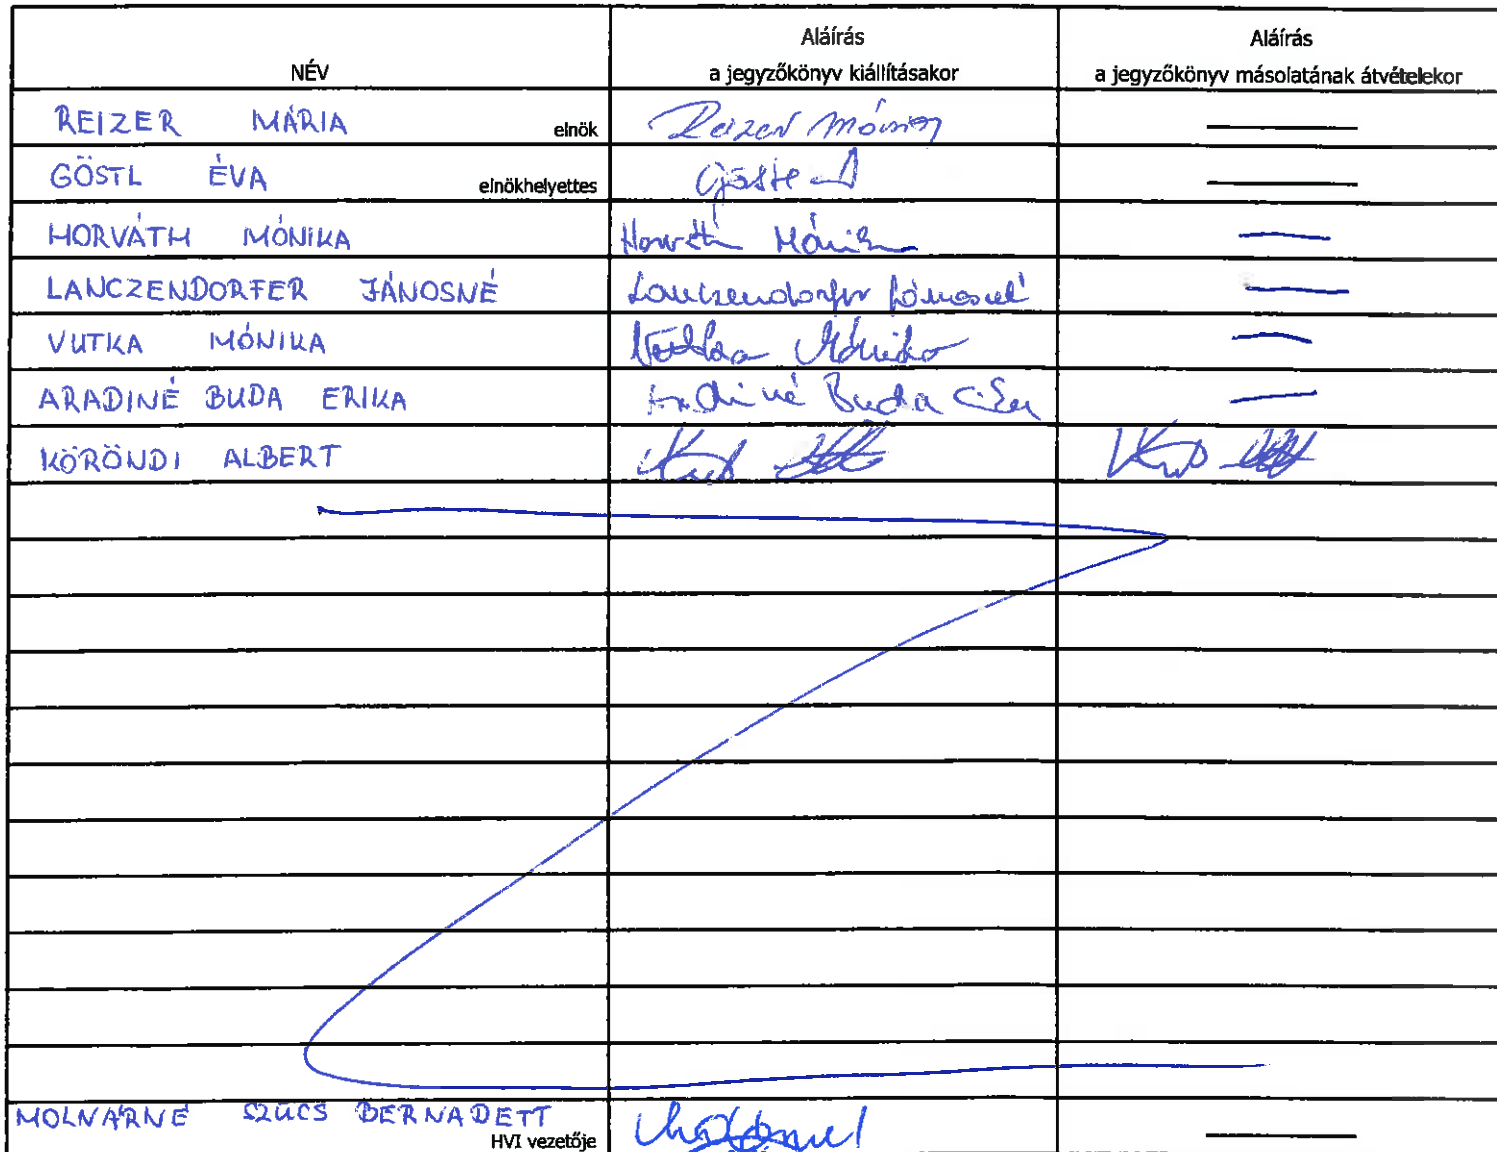 NÉV
Aláírás
a jegyzőkönyv kiállításakor
Aláírás
a jegyzőkönyv másolatának átvételekor
REIZER MÁRIA elnök Reizer Mária
GÖSTL ÉVA elnökhelyettes
HORVÁTH MÓNIKA Horváth Mónika
LANCZENDORFER JÁNOSNÉ Lanczendorfer Jánosné
VUTKA MÓNIKA Vutka Mónika
ARADINÉ BUDA ERIKA Aradiné Buda
KÖRÖNDI ALBERT
MOLNÁRNÉ SZŰCS BERNADETT HVI vezetője